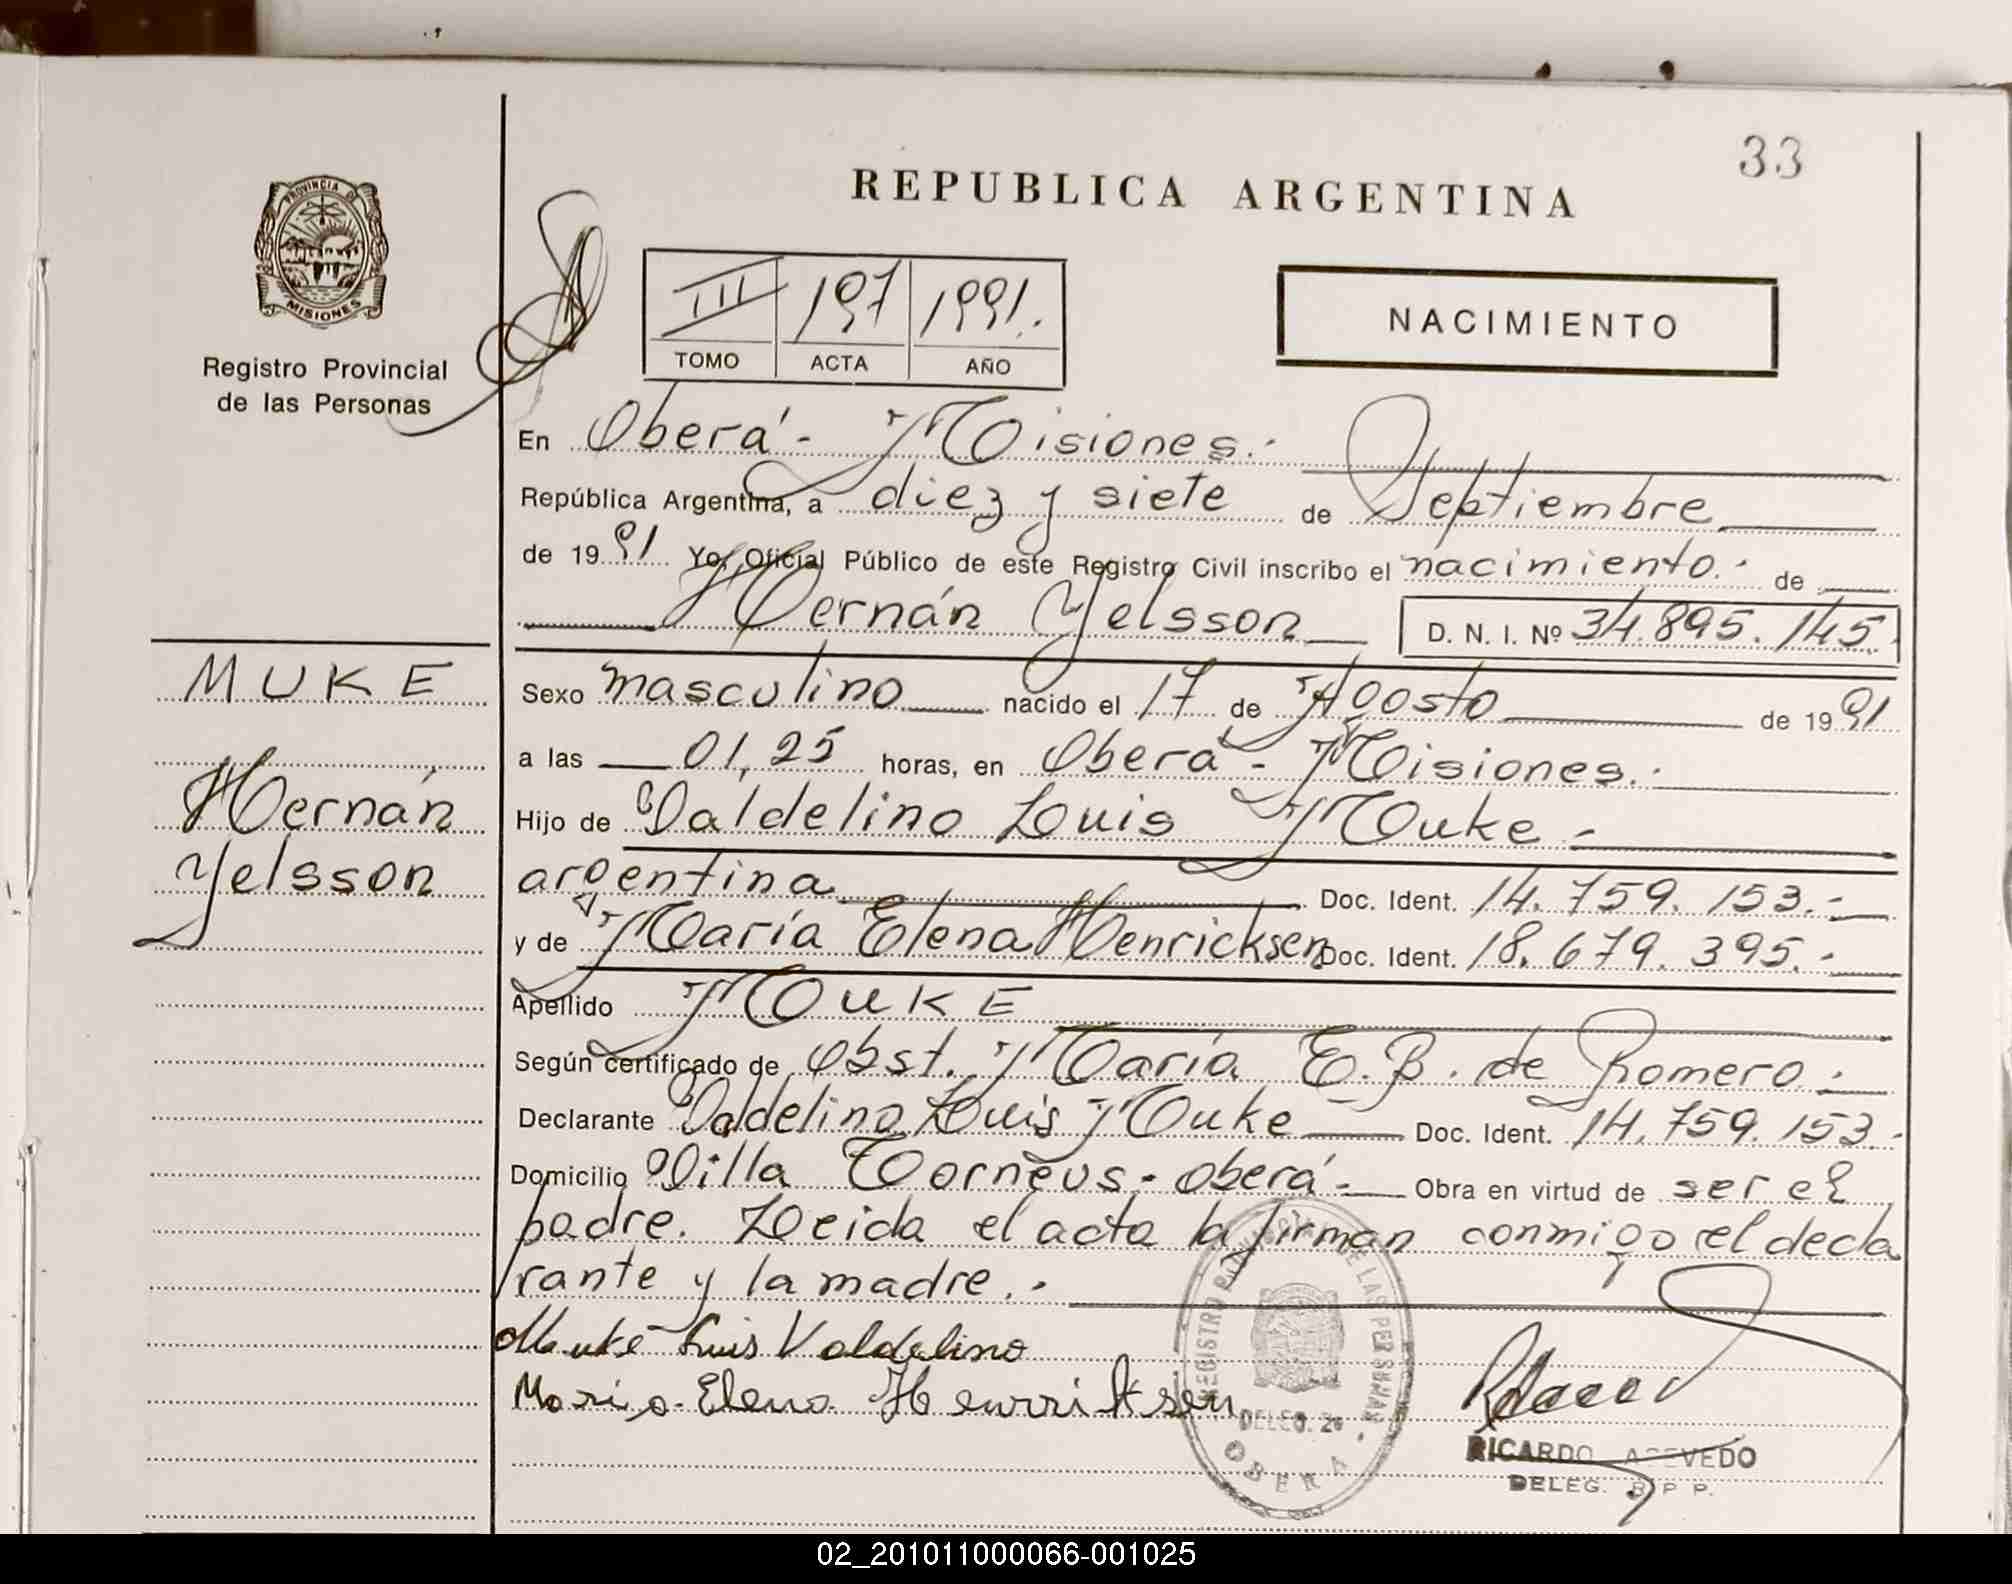 33
REPUBLICA ARGENTINA
PROVINCIA DE
MISIONES
Registro Provincial
de las Personas
III 197 1991.
TOMO ACTA AÑO
NACIMIENTO
En Oberá - Misiones.-
República Argentina, a diez y siete de Septiembre
de 1991 Yo, Oficial Público de este Registro Civil inscribo el nacimiento.- de
Hernán Yelsson D. N. I. Nº 34.895.145.
MUKE
Sexo masculino nacido el 17 de Agosto de 1991
a las 01,25 horas, en Oberá - Misiones.-
Hernán
Hijo de Valdelino Luis Muke -
Yelsson
argentina Doc. Ident. 14.759.153.-
y de María Elena Henricksen Doc. Ident. 18.679.395.-
Apellido MUKE
Según certificado de Obst. María E. B. de Romero.-
Declarante Valdelino Luis Muke Doc. Ident. 14.759.153.
Domicilio Villa Torneus - Oberá - Obra en virtud de ser el
padre. Leida el acta la firman conmigo el decla
rante y la madre.-
Muke Luis Valdelino
Maria Elena Henrriksen
REGISTRO PROVINCIAL DE LAS PERSONAS
DELEG. 26
OBERA
RICARDO ACEVEDO
DELEG. R P P.
02_201011000066-001025